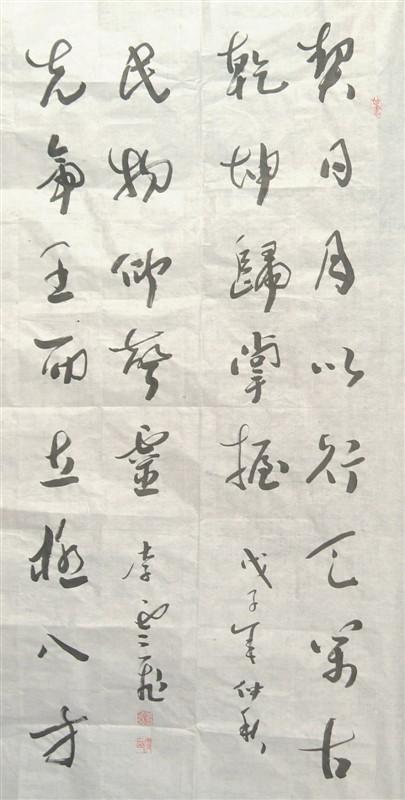 契日月以行天萬古
乾坤歸掌握
戊子年仲秋
先帝王而立極八方
民物仰聲靈